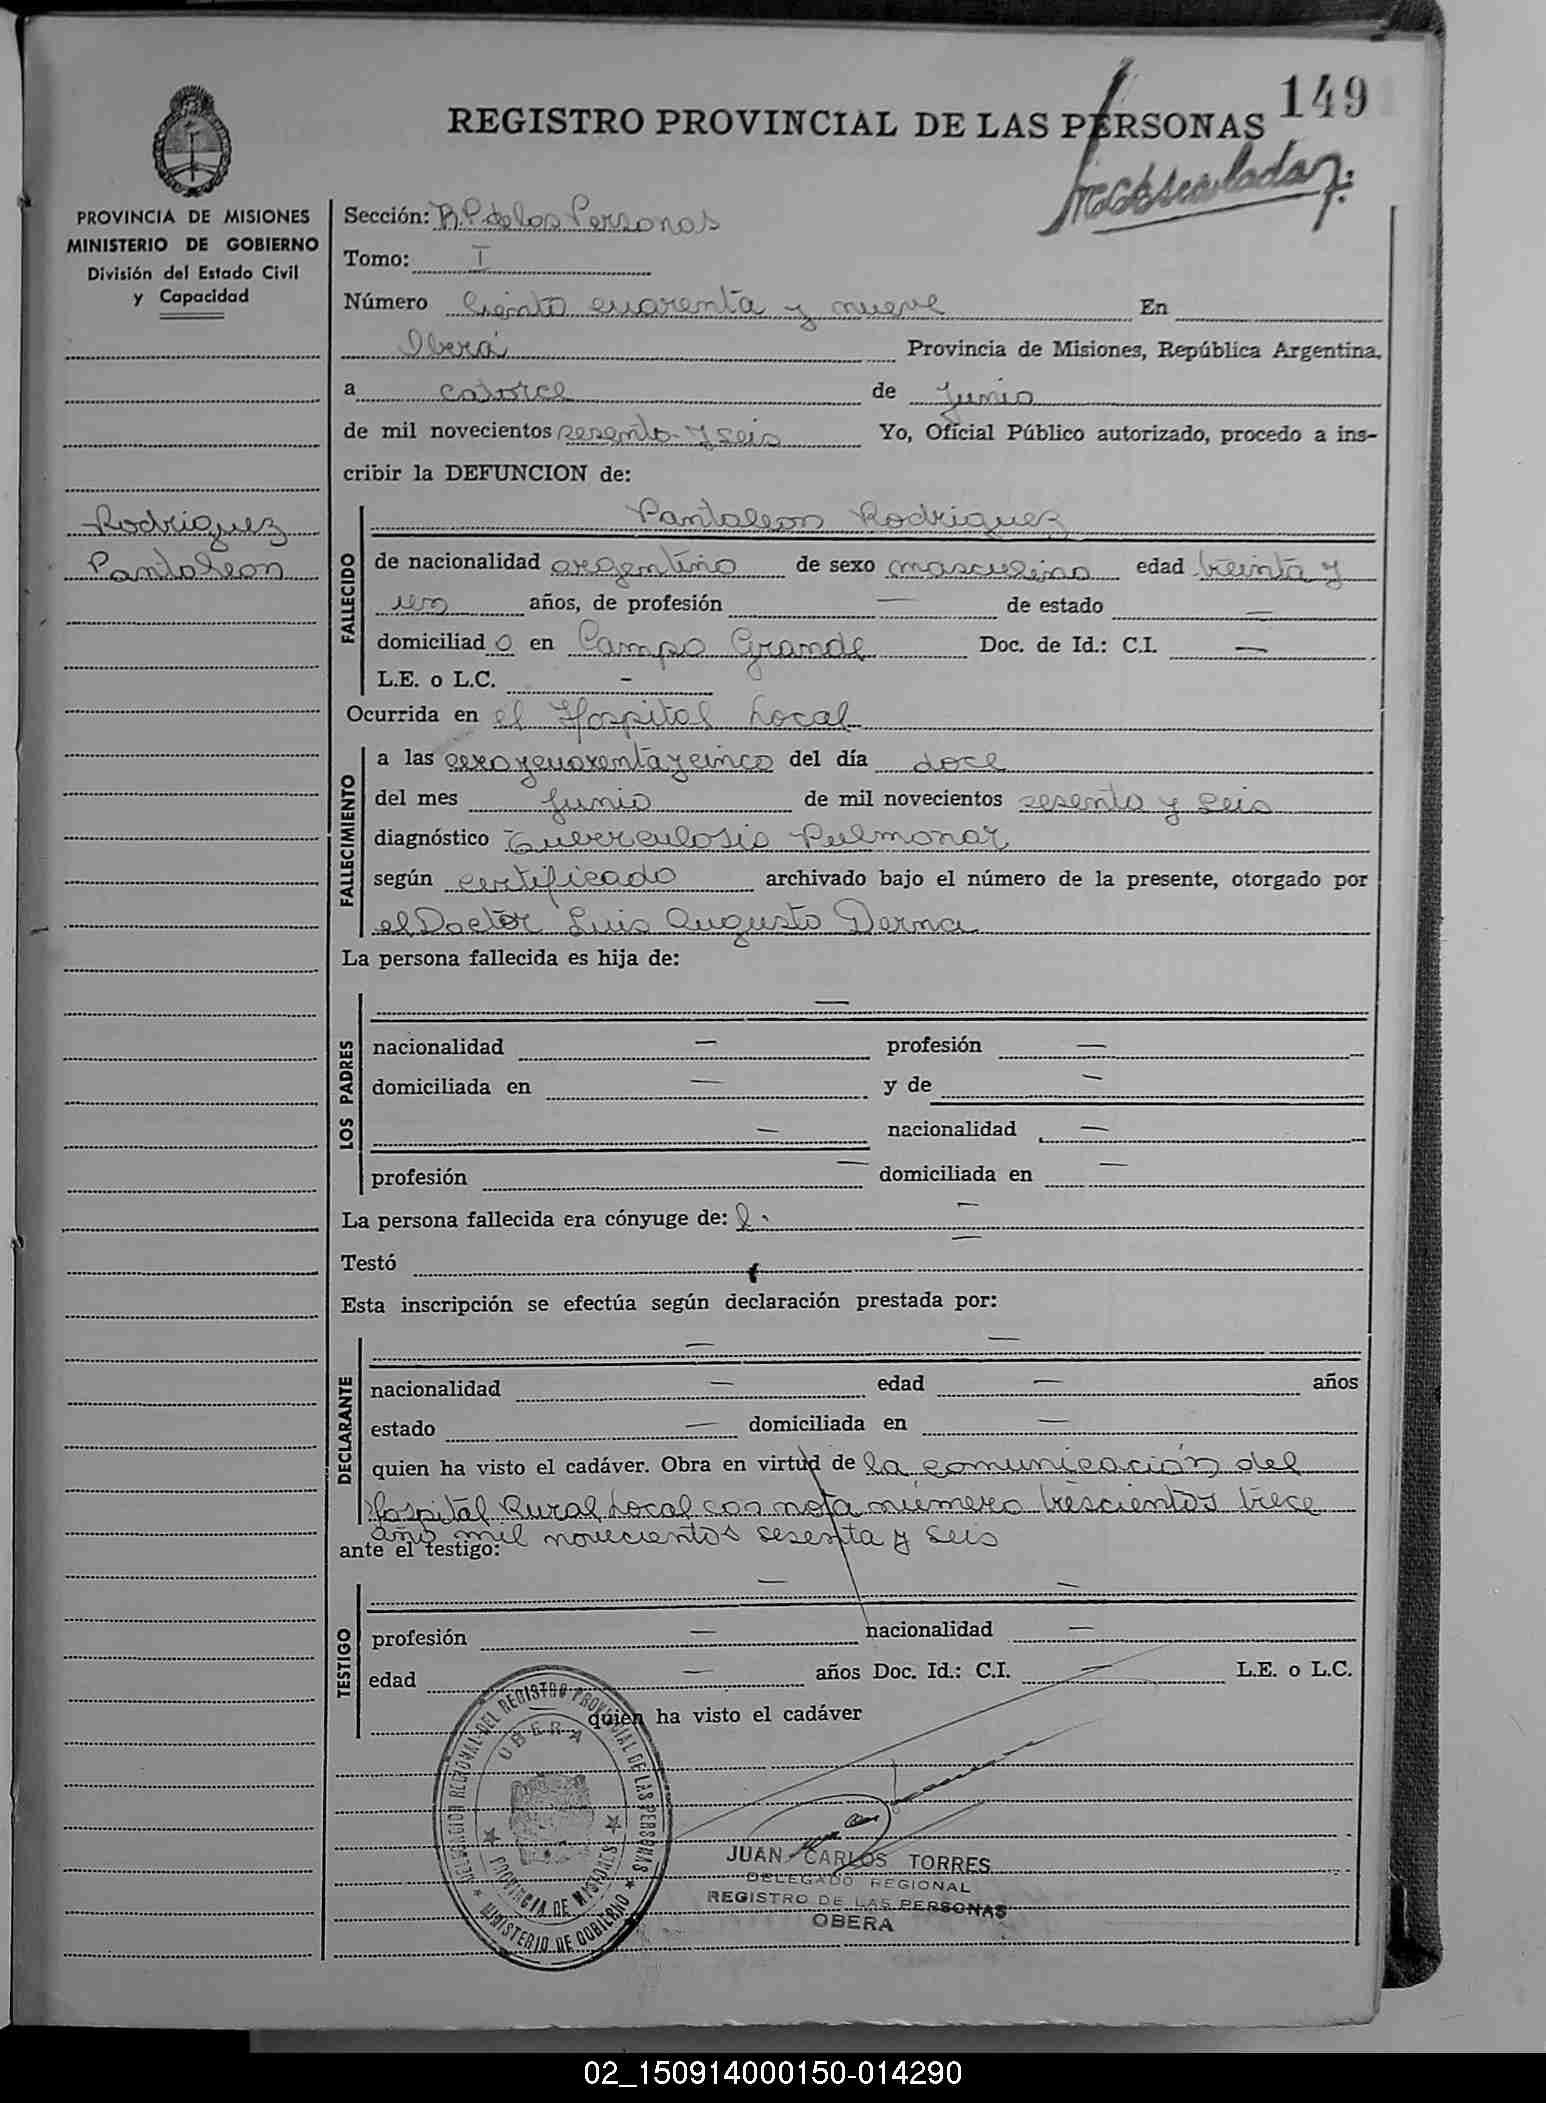 149
REGISTRO PROVINCIAL DE LAS PERSONAS
PROVINCIA DE MISIONES
MINISTERIO DE GOBIERNO
División del Estado Civil
y Capacidad
Rodriguez
Pantaleon
Sección: R.P. de las Personas
Tomo: I
Número Ciento cuarenta y nueve En
Oberá Provincia de Misiones, República Argentina,
a catorce de Junio
de mil novecientos sesenta y seis Yo, Oficial Público autorizado, procedo a ins-
cribir la DEFUNCION de:
FALLECIDO
Pantaleon Rodriguez
de nacionalidad argentino de sexo masculino edad treinta y
un años, de profesión — de estado —
domiciliado en Campo Grande Doc. de Id.: C.I. —
L.E. o L.C. -
Ocurrida en el Hospital Local
FALLECIMIENTO
a las cero y cuarenta y cinco del día doce
del mes Junio de mil novecientos sesenta y seis
diagnóstico Tuberculosis Pulmonar
según certificado archivado bajo el número de la presente, otorgado por
el Doctor Luis Augusto Derna
La persona fallecida es hija de:
LOS PADRES
—
nacionalidad — profesión —
domiciliada en — y de —
— nacionalidad —
profesión — domiciliada en —
La persona fallecida era cónyuge de: —
Testó —
Esta inscripción se efectúa según declaración prestada por:
DECLARANTE
— —
nacionalidad — edad — años
estado — domiciliada en —
quien ha visto el cadáver. Obra en virtud de la comunicación del
Hospital Rural Local con nota número trescientos trece
año mil novecientos sesenta y seis
ante el testigo:
TESTIGO
— —
profesión — nacionalidad —
edad — años Doc. Id.: C.I. — L.E. o L.C.
— quien ha visto el cadáver
DELEGACION REGIONAL DEL REGISTRO PROVINCIAL DE LAS PERSONAS
OBERA
PROVINCIA DE MISIONES
MINISTERIO DE GOBIERNO
JUAN CARLOS TORRES
DELEGADO REGIONAL
REGISTRO DE LAS PERSONAS
OBERA
02_150914000150-014290